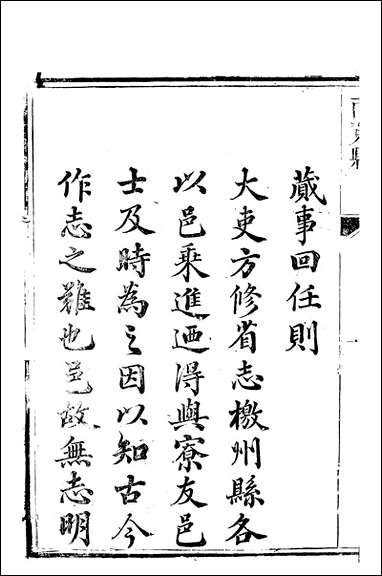 蕆事回任則
大吏方修省志檄州縣各
以邑乘進迺得與寮友邑
士及時為之因以知古今
作志之難也邑故無志明